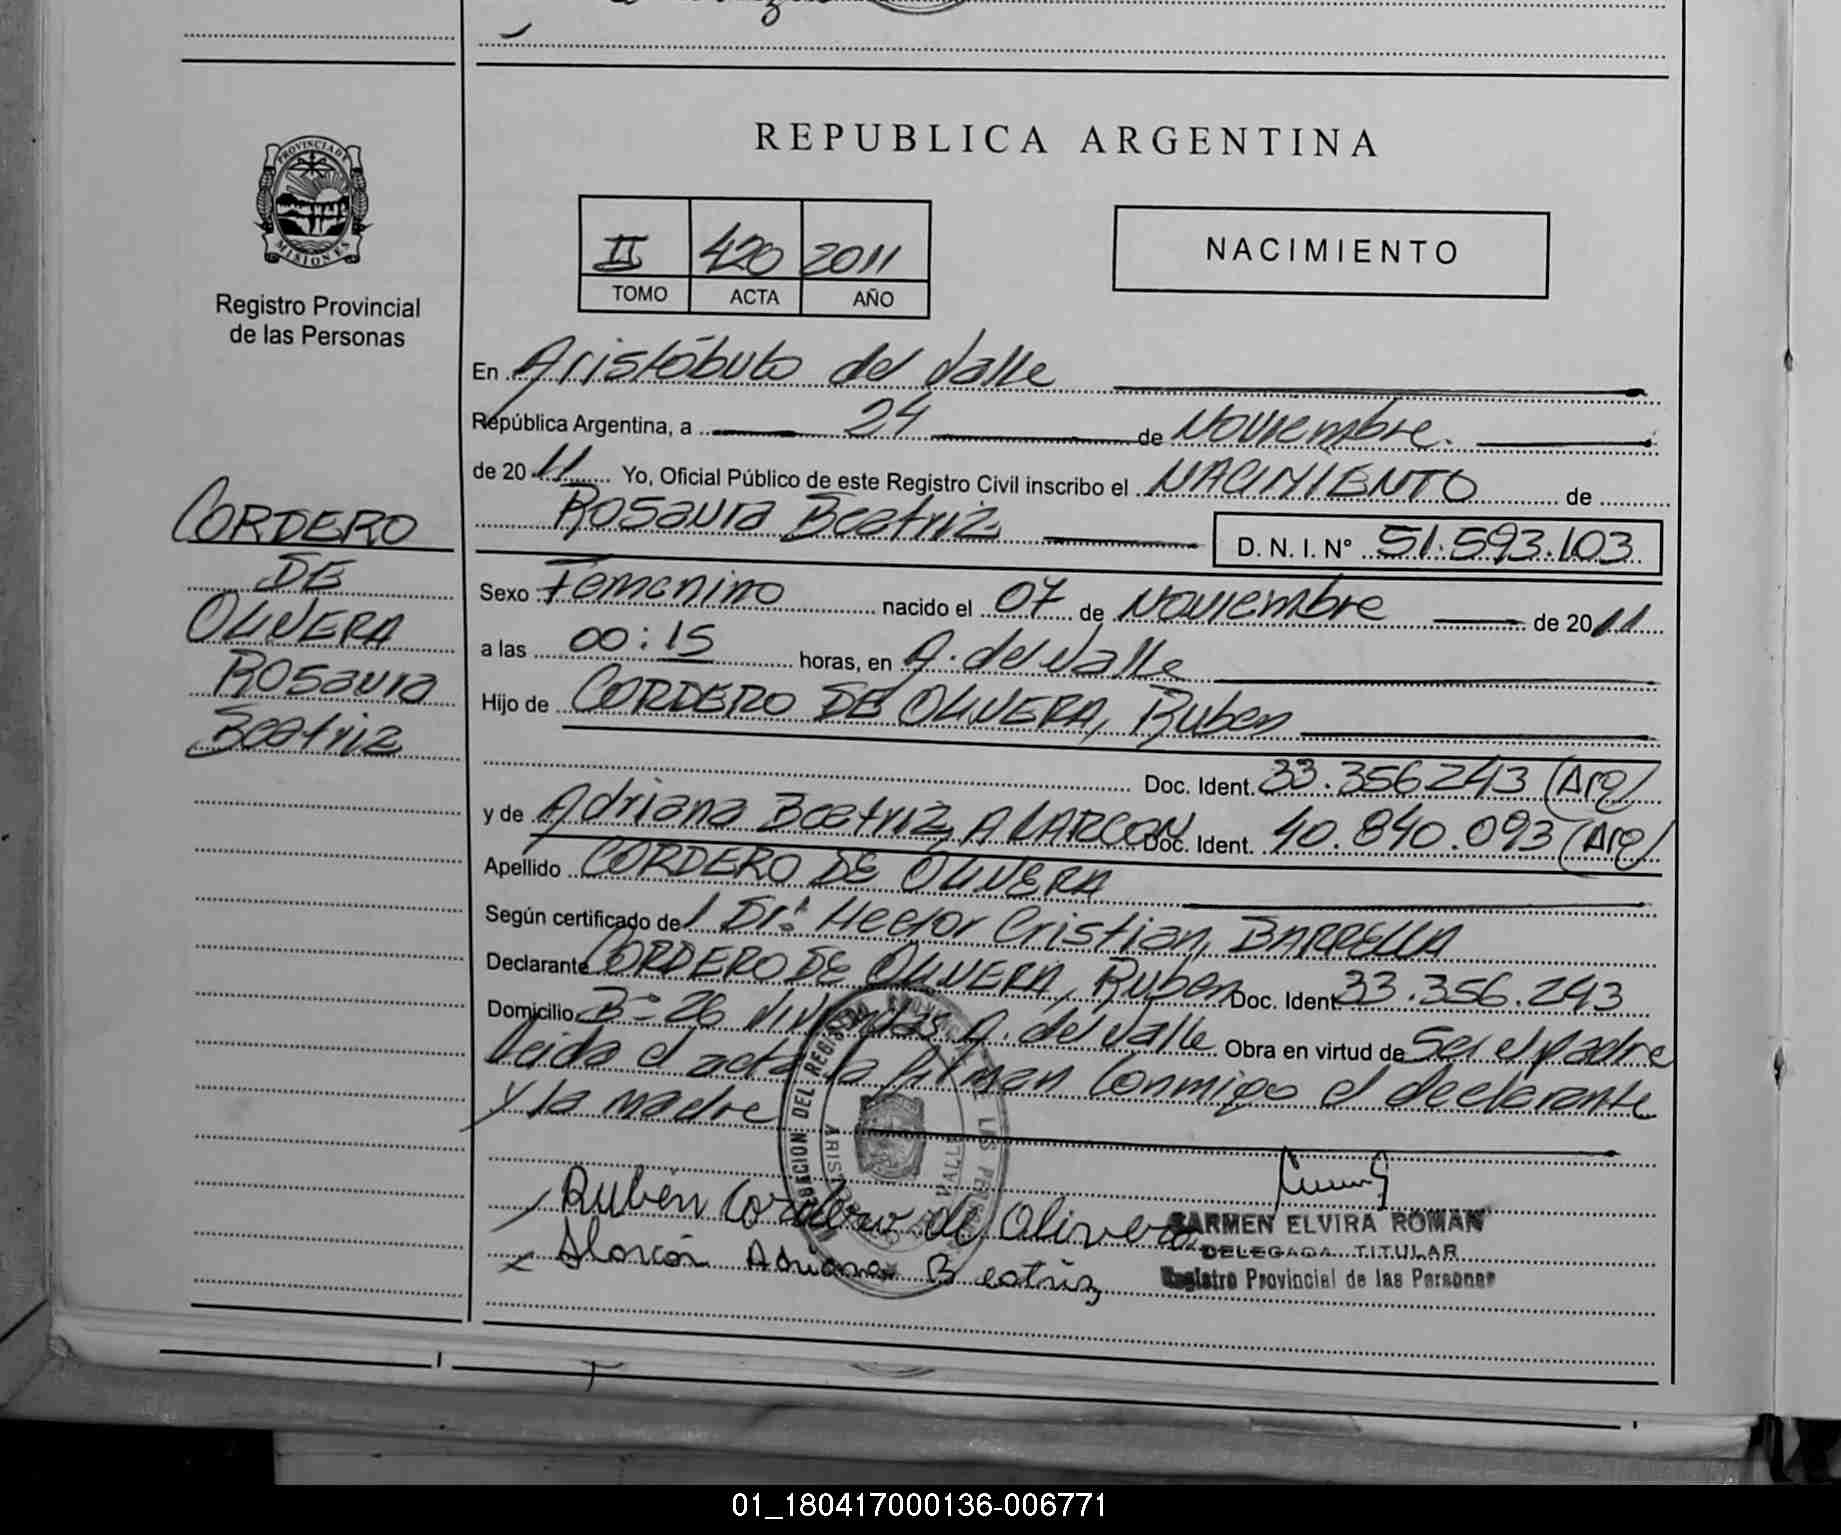 REPUBLICA ARGENTINA
PROVINCIA DE
MISIONES
Registro Provincial
de las Personas
II 420 2011
TOMO ACTA AÑO
NACIMIENTO
CORDERO
DE
OLIVERA
Rosaura
Beatriz
En Aristóbulo del Valle
República Argentina, a 24 de Noviembre.
de 2011 Yo, Oficial Público de este Registro Civil inscribo el NACIMIENTO de
Rosaura Beatriz D. N. I. N° 51.593.103
Sexo Femenino nacido el 07 de Noviembre de 2011
a las 00:15 horas, en A. del Valle
Hijo de CORDERO DE OLIVERA, Ruben
Doc. Ident. 33.356243 (Arg)
y de Adriana Beatriz, ALARCON Doc. Ident. 40.840.093 (Arg)
Apellido CORDERO DE OLIVERA
Según certificado de Dr. Hector Cristian, BARRELLA
Declarante CORDERO DE OLIVERA, Ruben Doc. Ident. 33.356.243
Domicilio B= 26 Viviendas A. del Valle Obra en virtud de Ser el padre
Leida el acta la firman conmigo el declarante
y la madre
Rubén Cordero de Olivera
Alarcón Adriana Beatriz
CARMEN ELVIRA ROMAN
DELEGADA TITULAR
Registro Provincial de las Personas
01_180417000136-006771